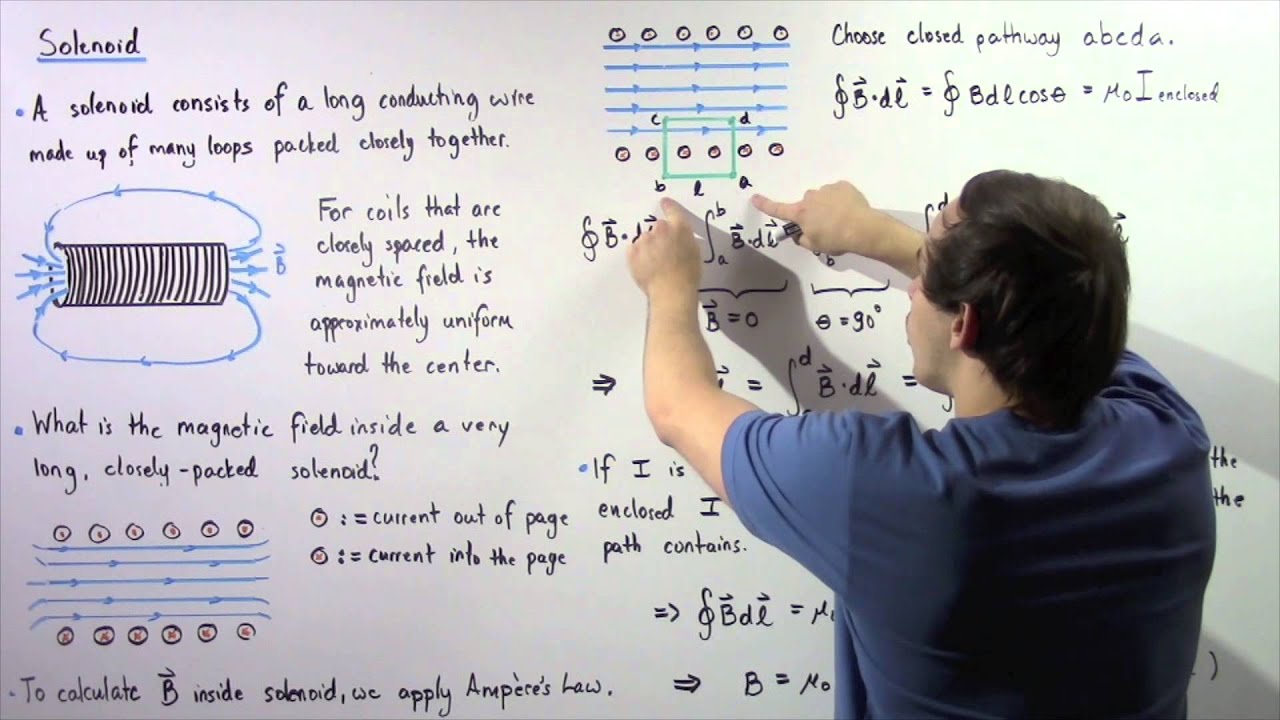 Solenoid
• A solenoid consists of a long conducting wire
made up of many loops packed closely together.
B⃗
For coils that are
closely spaced, the
magnetic field is
approximately uniform
toward the center.
• What is the magnetic field inside a very
long, closely-packed solenoid?
⊙ := current out of page
⊗ := current into the page
• To calculate B⃗ inside solenoid, we apply Ampère's Law.
c d
b l a
Choose closed pathway abcda.
∮B⃗·dl⃗ = ∮ Bdlcosθ = μ₀I enclosed
∮B⃗·dl⃗ ∫ₐᵇ B⃗·dl⃗
B⃗ = 0 θ = 90°
⇒ = ∫ᵈ B⃗·dl⃗ =
• If I is the
enclosed I the
path contains.
=> ∮B⃗dl⃗ = μ
⇒ B = μ₀ )